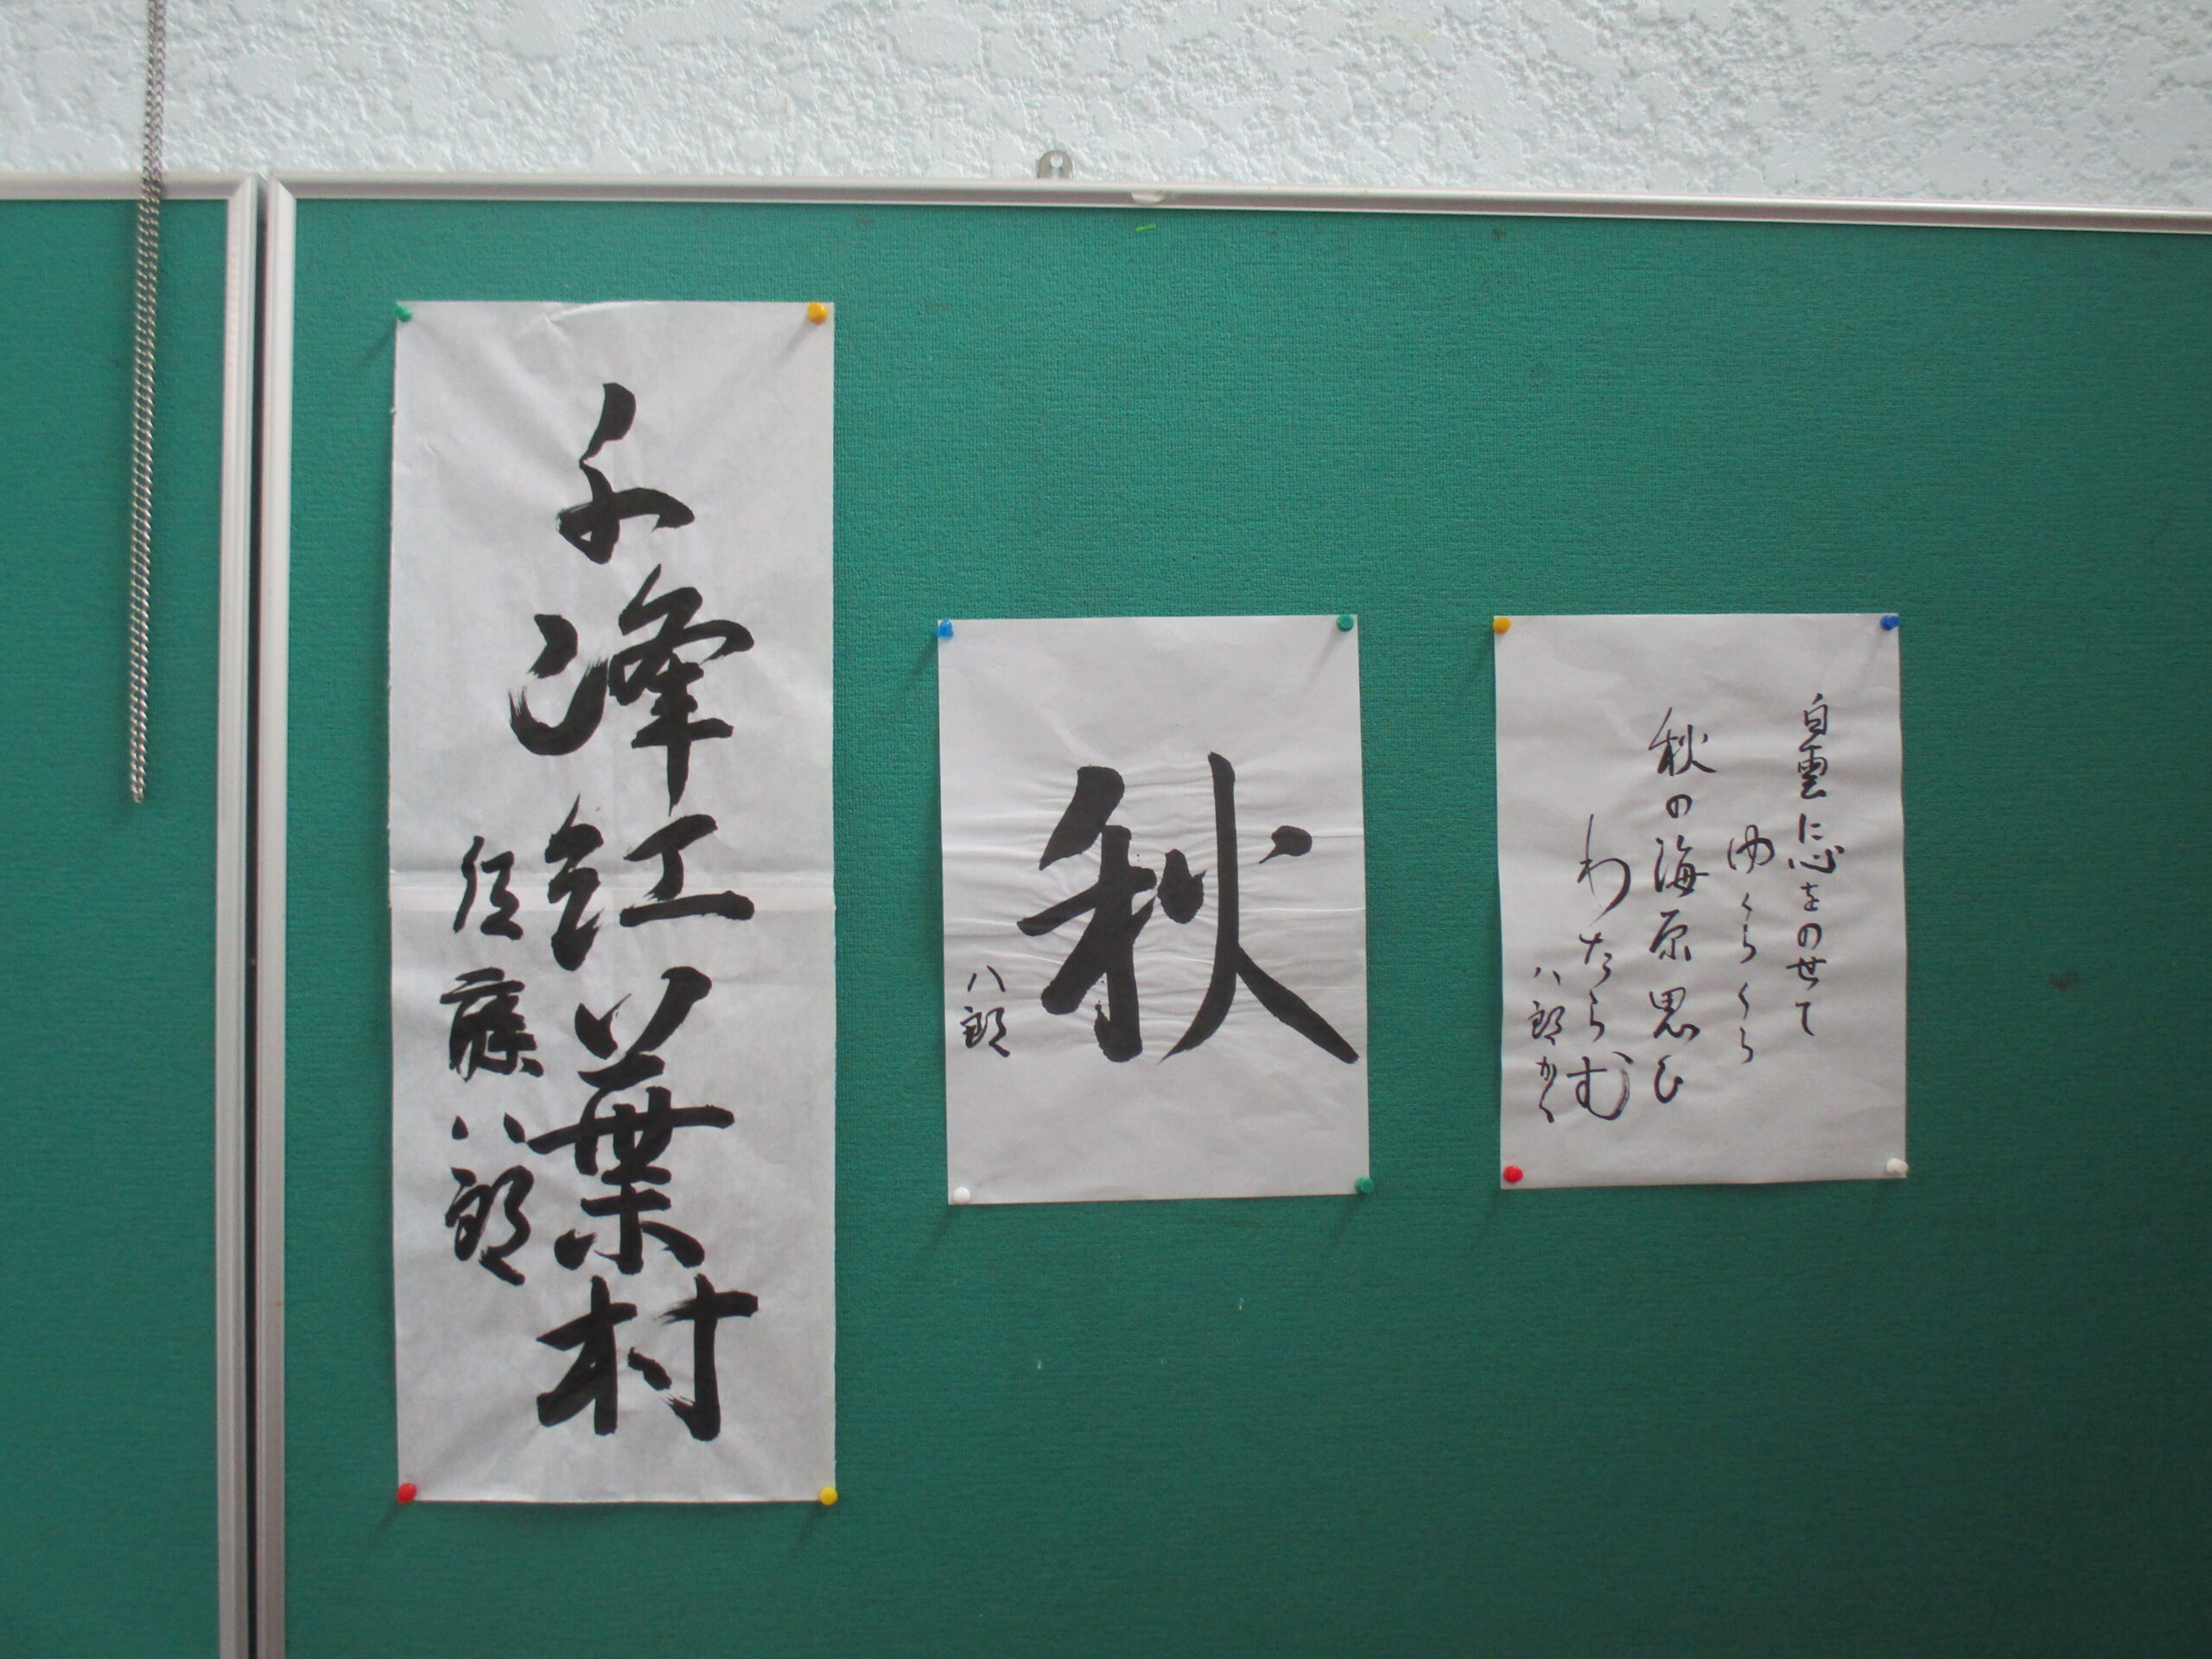 千峰紅葉村
佐藤八郎
秋
八郎
白雲に心をのせて
ゆくらくら
秋の海原思ひ
わたらむ
八郎かく